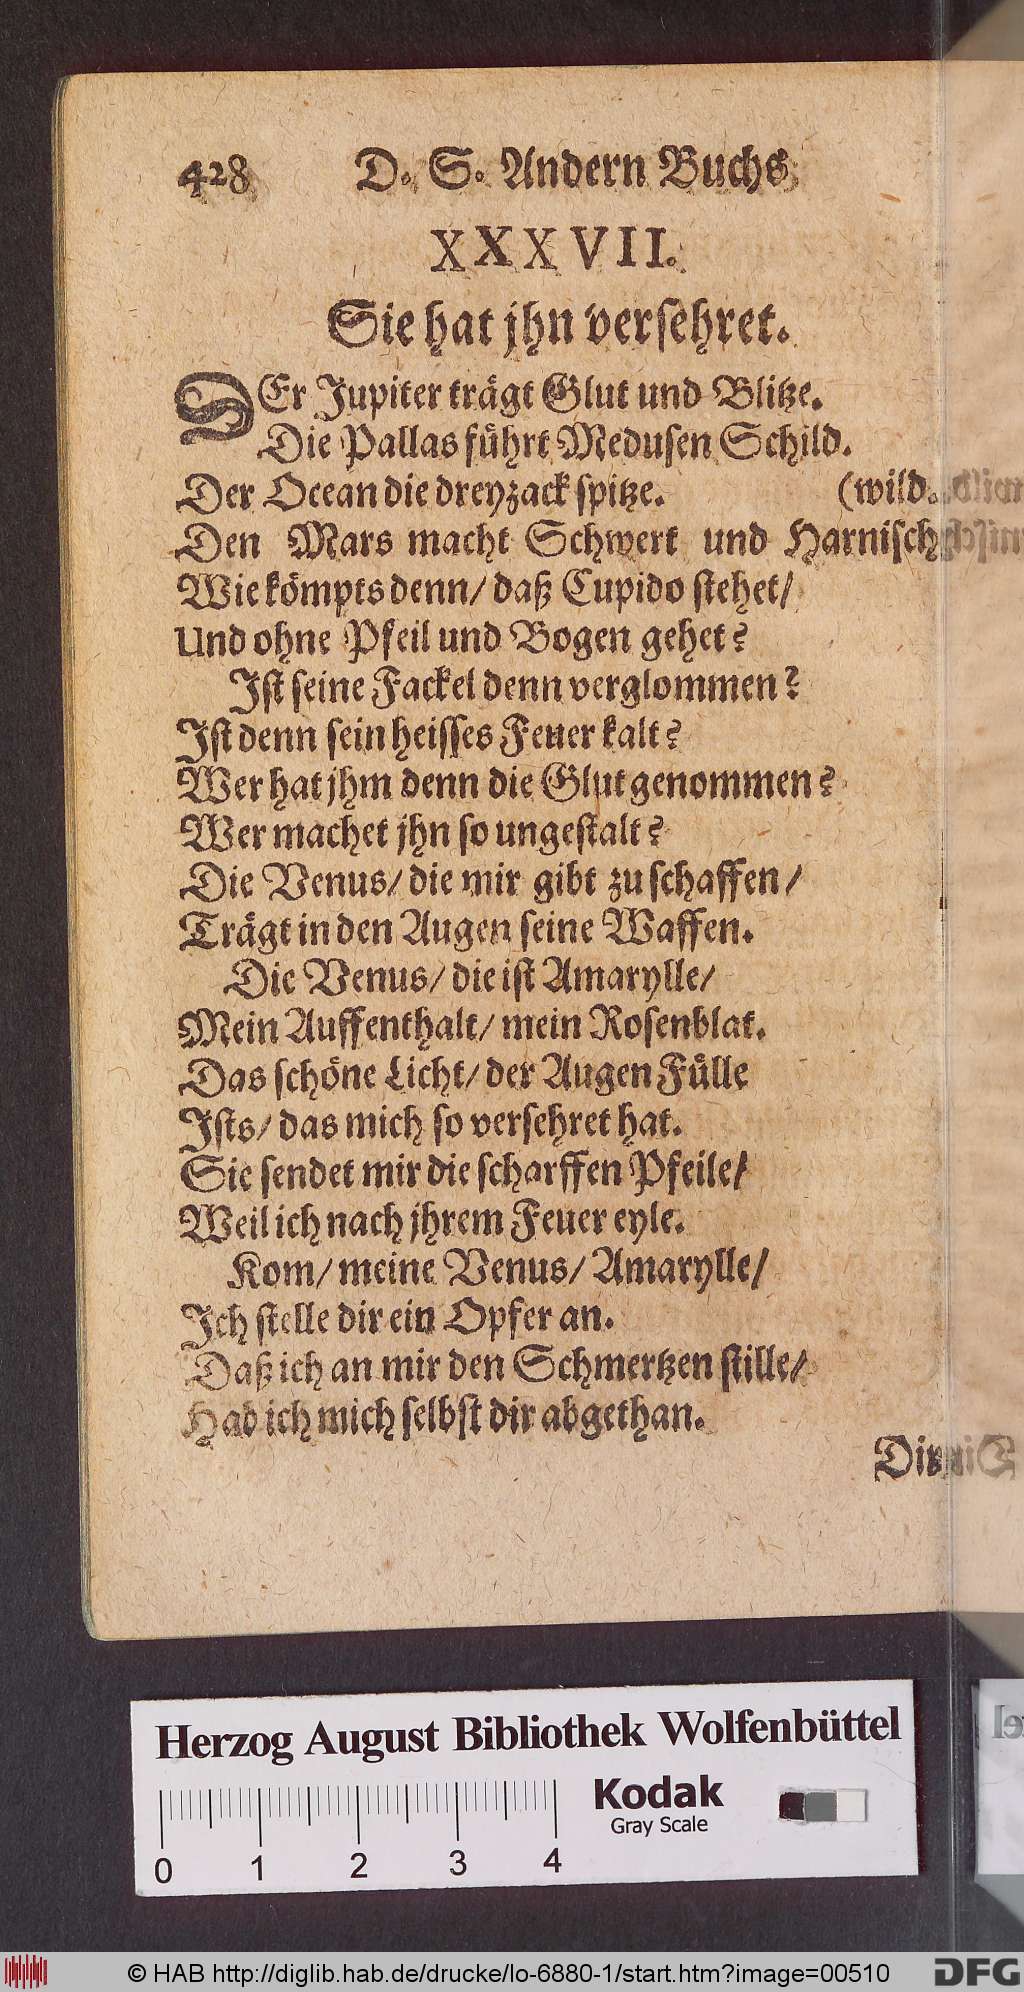 428 D. S. Andern Buchs
XXXVII.
Sie hat jhn versehret.
DEr Jupiter trägt Glut und Blitze.
Die Pallas führt Medusen Schild.
Der Ocean die dreyzack spitze. (wild.
Den Mars macht Schwert und Harnisch
Wie kömpts denn/ daß Cupido stehet/
Und ohne Pfeil und Bogen gehet?
Ist seine Fackel denn verglommen?
Ist denn sein heisses Feuer kalt?
Wer hat jhm denn die Glut genommen?
Wer machet jhn so ungestalt?
Die Venus/ die mir gibt zu schaffen/
Trägt in den Augen seine Waffen.
Die Venus/ die ist Amarylle/
Mein Auffenthalt/ mein Rosenblat.
Das schöne Licht/ der Augen Fülle
Ists/ das mich so versehret hat.
Sie sendet mir die scharffen Pfeile/
Weil ich nach jhrem Feuer eyle.
Kom/ meine Venus/ Amarylle/
Ich stelle dir ein Opfer an.
Daß ich an mir den Schmertzen stille/
Had ich mich selbst dir abgethan.
Dir
Herzog August Bibliothek Wolfenbüttel
Kodak
Gray Scale
0 1 2 3 4
© HAB http://diglib.hab.de/drucke/lo-6880-1/start.htm?image=00510
DFG